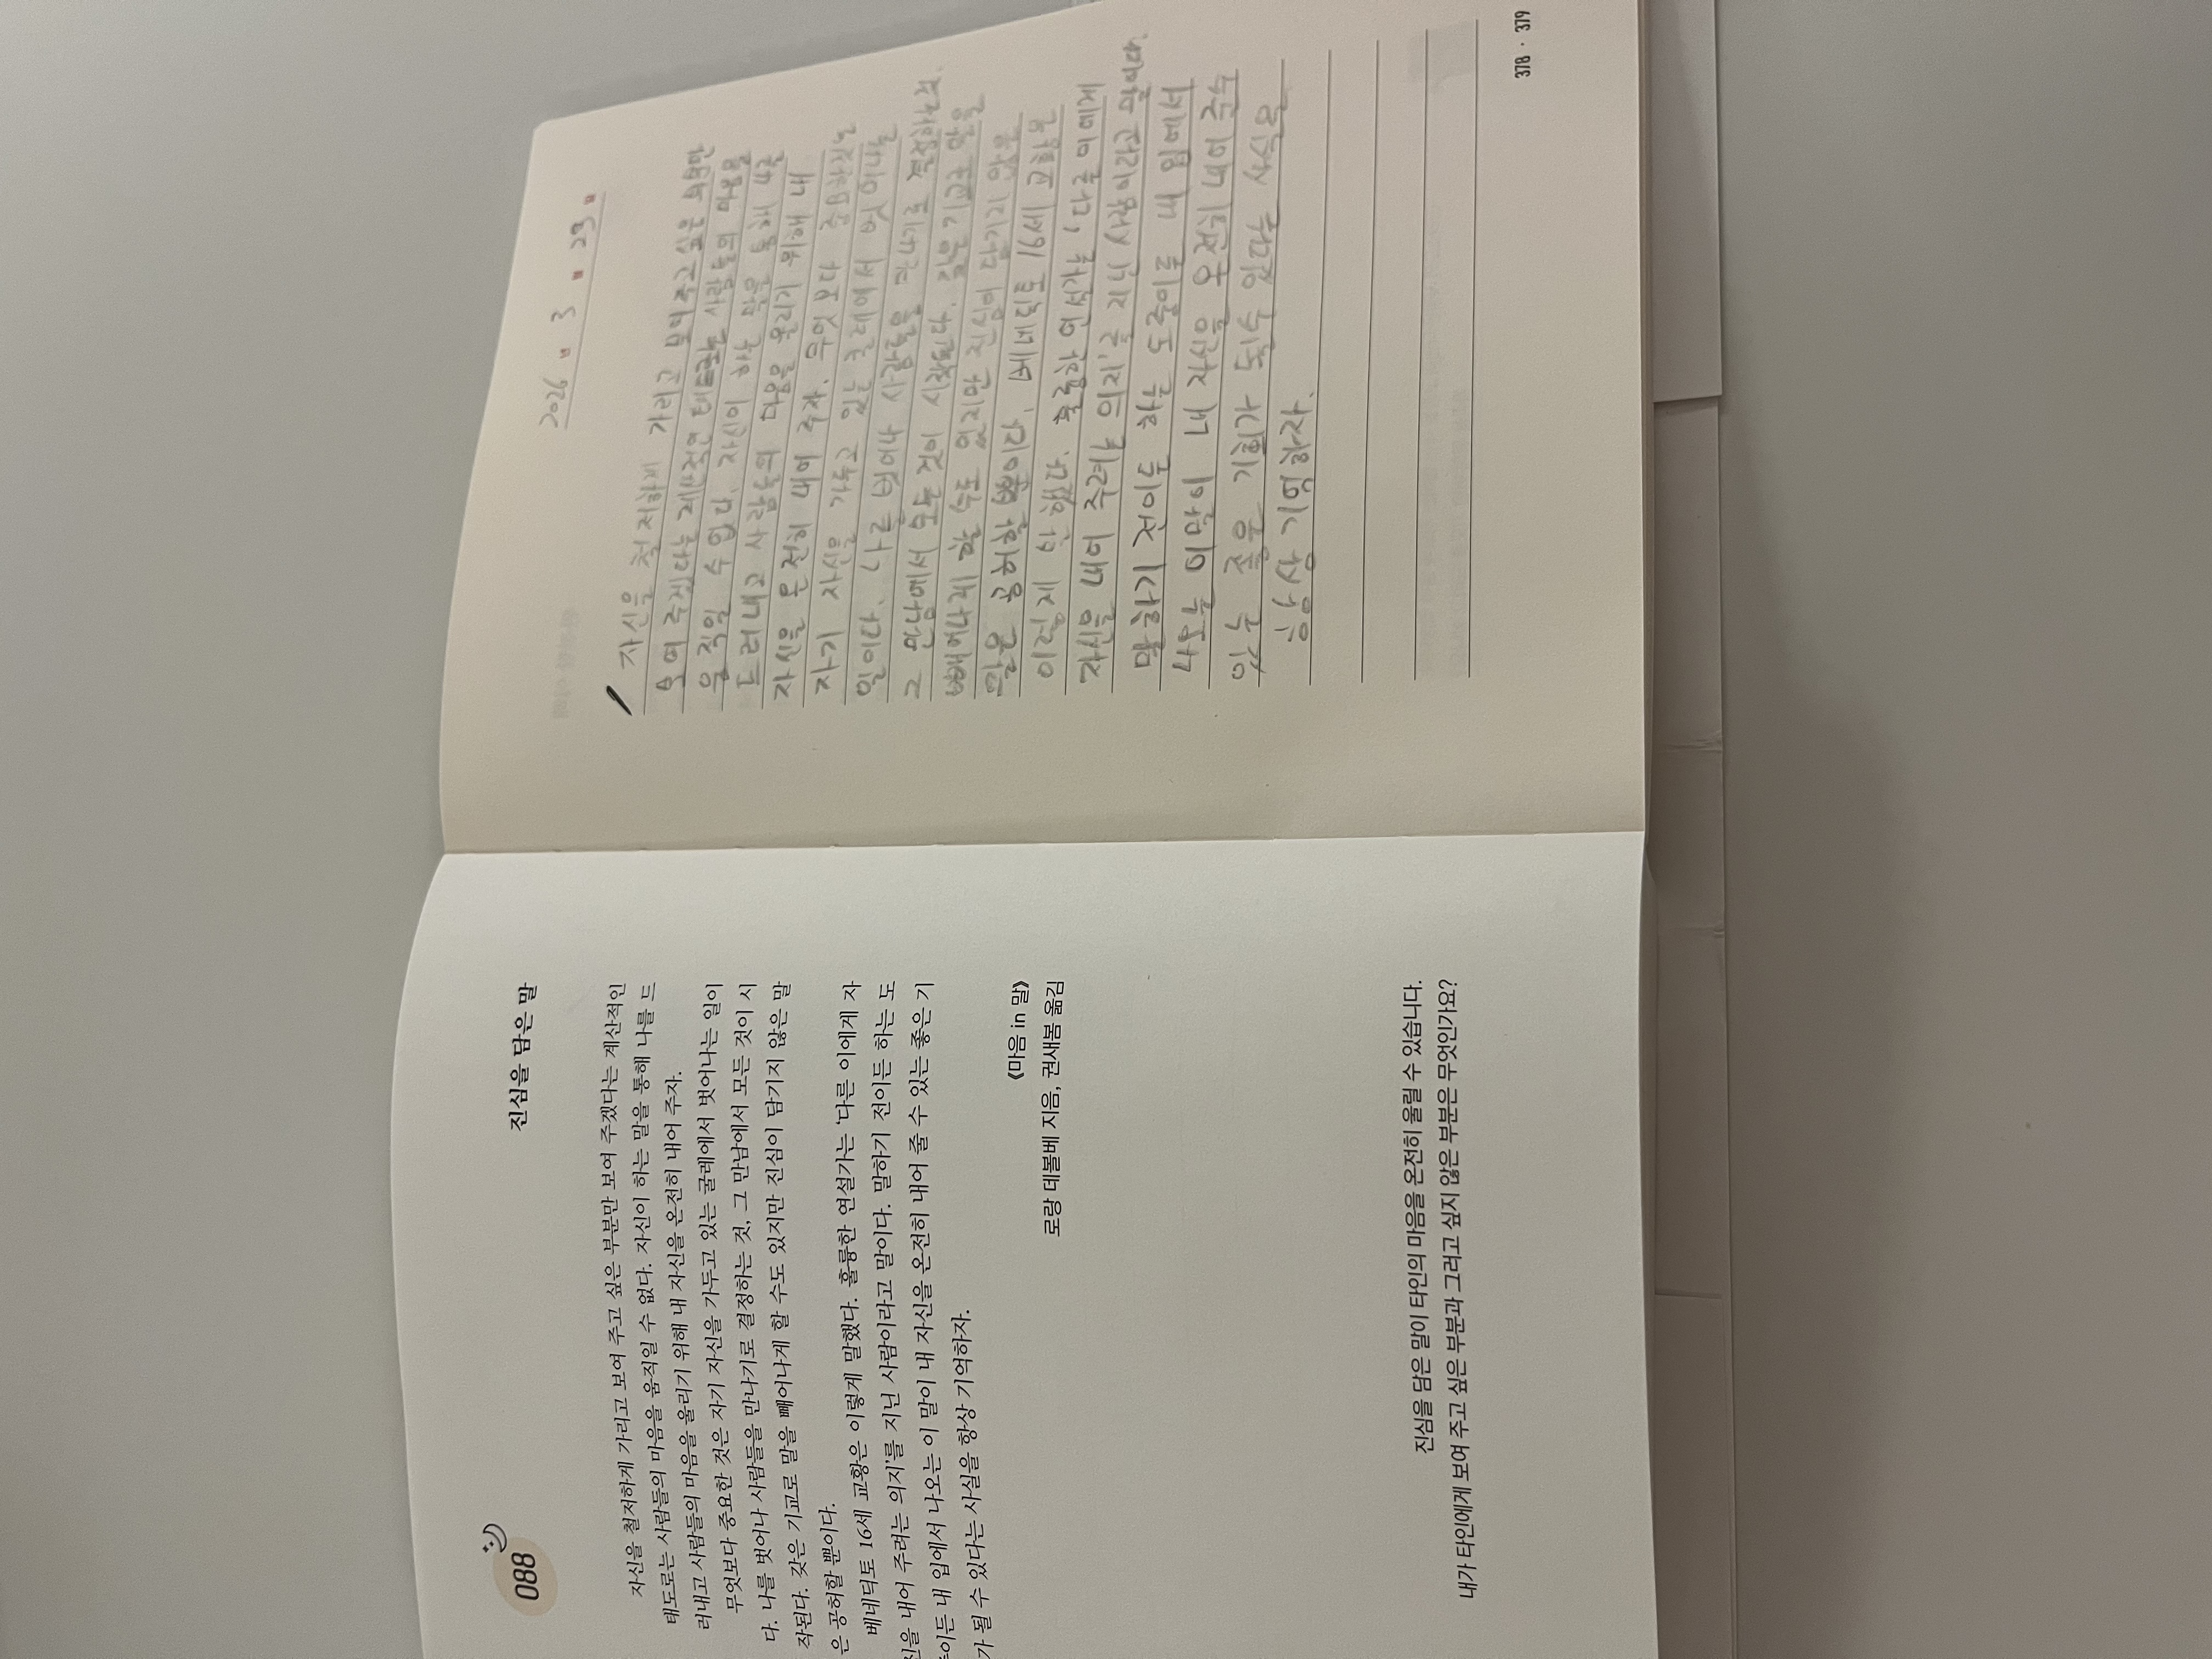 088
진심을 담은 말
자신을 철저하게 가리고 보여 주고 싶은 부분만 보여 주겠다는 계산적인
태도로는 사람들의 마음을 움직일 수 없다. 자신이 하는 말을 통해 나를 드
러내고 사람들의 마음을 울리기 위해 내 자신을 온전히 내어 주자.
무엇보다 중요한 것은 자기 자신을 가두고 있는 굴레에서 벗어나는 일이
다. 나를 벗어나 사람들을 만나기로 결정하는 것, 그 만남에서 모든 것이 시
작된다. 갖은 기교로 말을 빼어나게 할 수도 있지만 진심이 담기지 않은 말
은 공허할 뿐이다.
베네딕토 16세 교황은 이렇게 말했다. 훌륭한 연설가는 '다른 이에게 자
신을 내어 주려는 의지'를 지닌 사람이라고 말이다. 말하기 전이든 하는 도
중이든 내 입에서 나오는 이 말이 내 자신을 온전히 내어 줄 수 있는 좋은 기
가 될 수 있다는 사실을 항상 기억하자.
《마음 in 말》
로랑 데볼베 지음, 권새봄 옮김
진심을 담은 말이 타인의 마음을 온전히 울릴 수 있습니다.
내가 타인에게 보여 주고 싶은 부분과 그러고 싶지 않은 부분은 무엇인가요?
2026 3 23
자신을 철저하게 가리고 보여주고 싶은 부분만
보여 주겠다는 계산적인 태도로는 사람들의 마음을
움직일 수 없다. 자신이 하는 말을 통해 나를
드러내고 사람들의 마음을 울리기 위해 내
자신을 온전히 내어 주자. 무엇보다 중요한것은
자기 자신을 가두고 있는 굴레에서 벗어나는
일이다. 나를 벗어나 사람들을 만나기로 결정하는것.
그 만남에서 모든 것이 시작된다. 갖은 기교로 말을
빼어나게 할 수도 있지만 진심이 담기지 않은
말은 공허할 뿐이다. 베네딕토 16세 교황은
이렇게 말했다. 훌륭한 연설가는, '다른 이에게
자신을 내어 주려는 의지'를 지닌 사람이라고 말이다.
말하기 전이든 하는 도중이든 내 입에서
나오는 이 말이 내 자신을 온전히 내어 줄수
있는 좋은 기회가 될수 있다는 사실을
항상 기억하자.
378 · 379